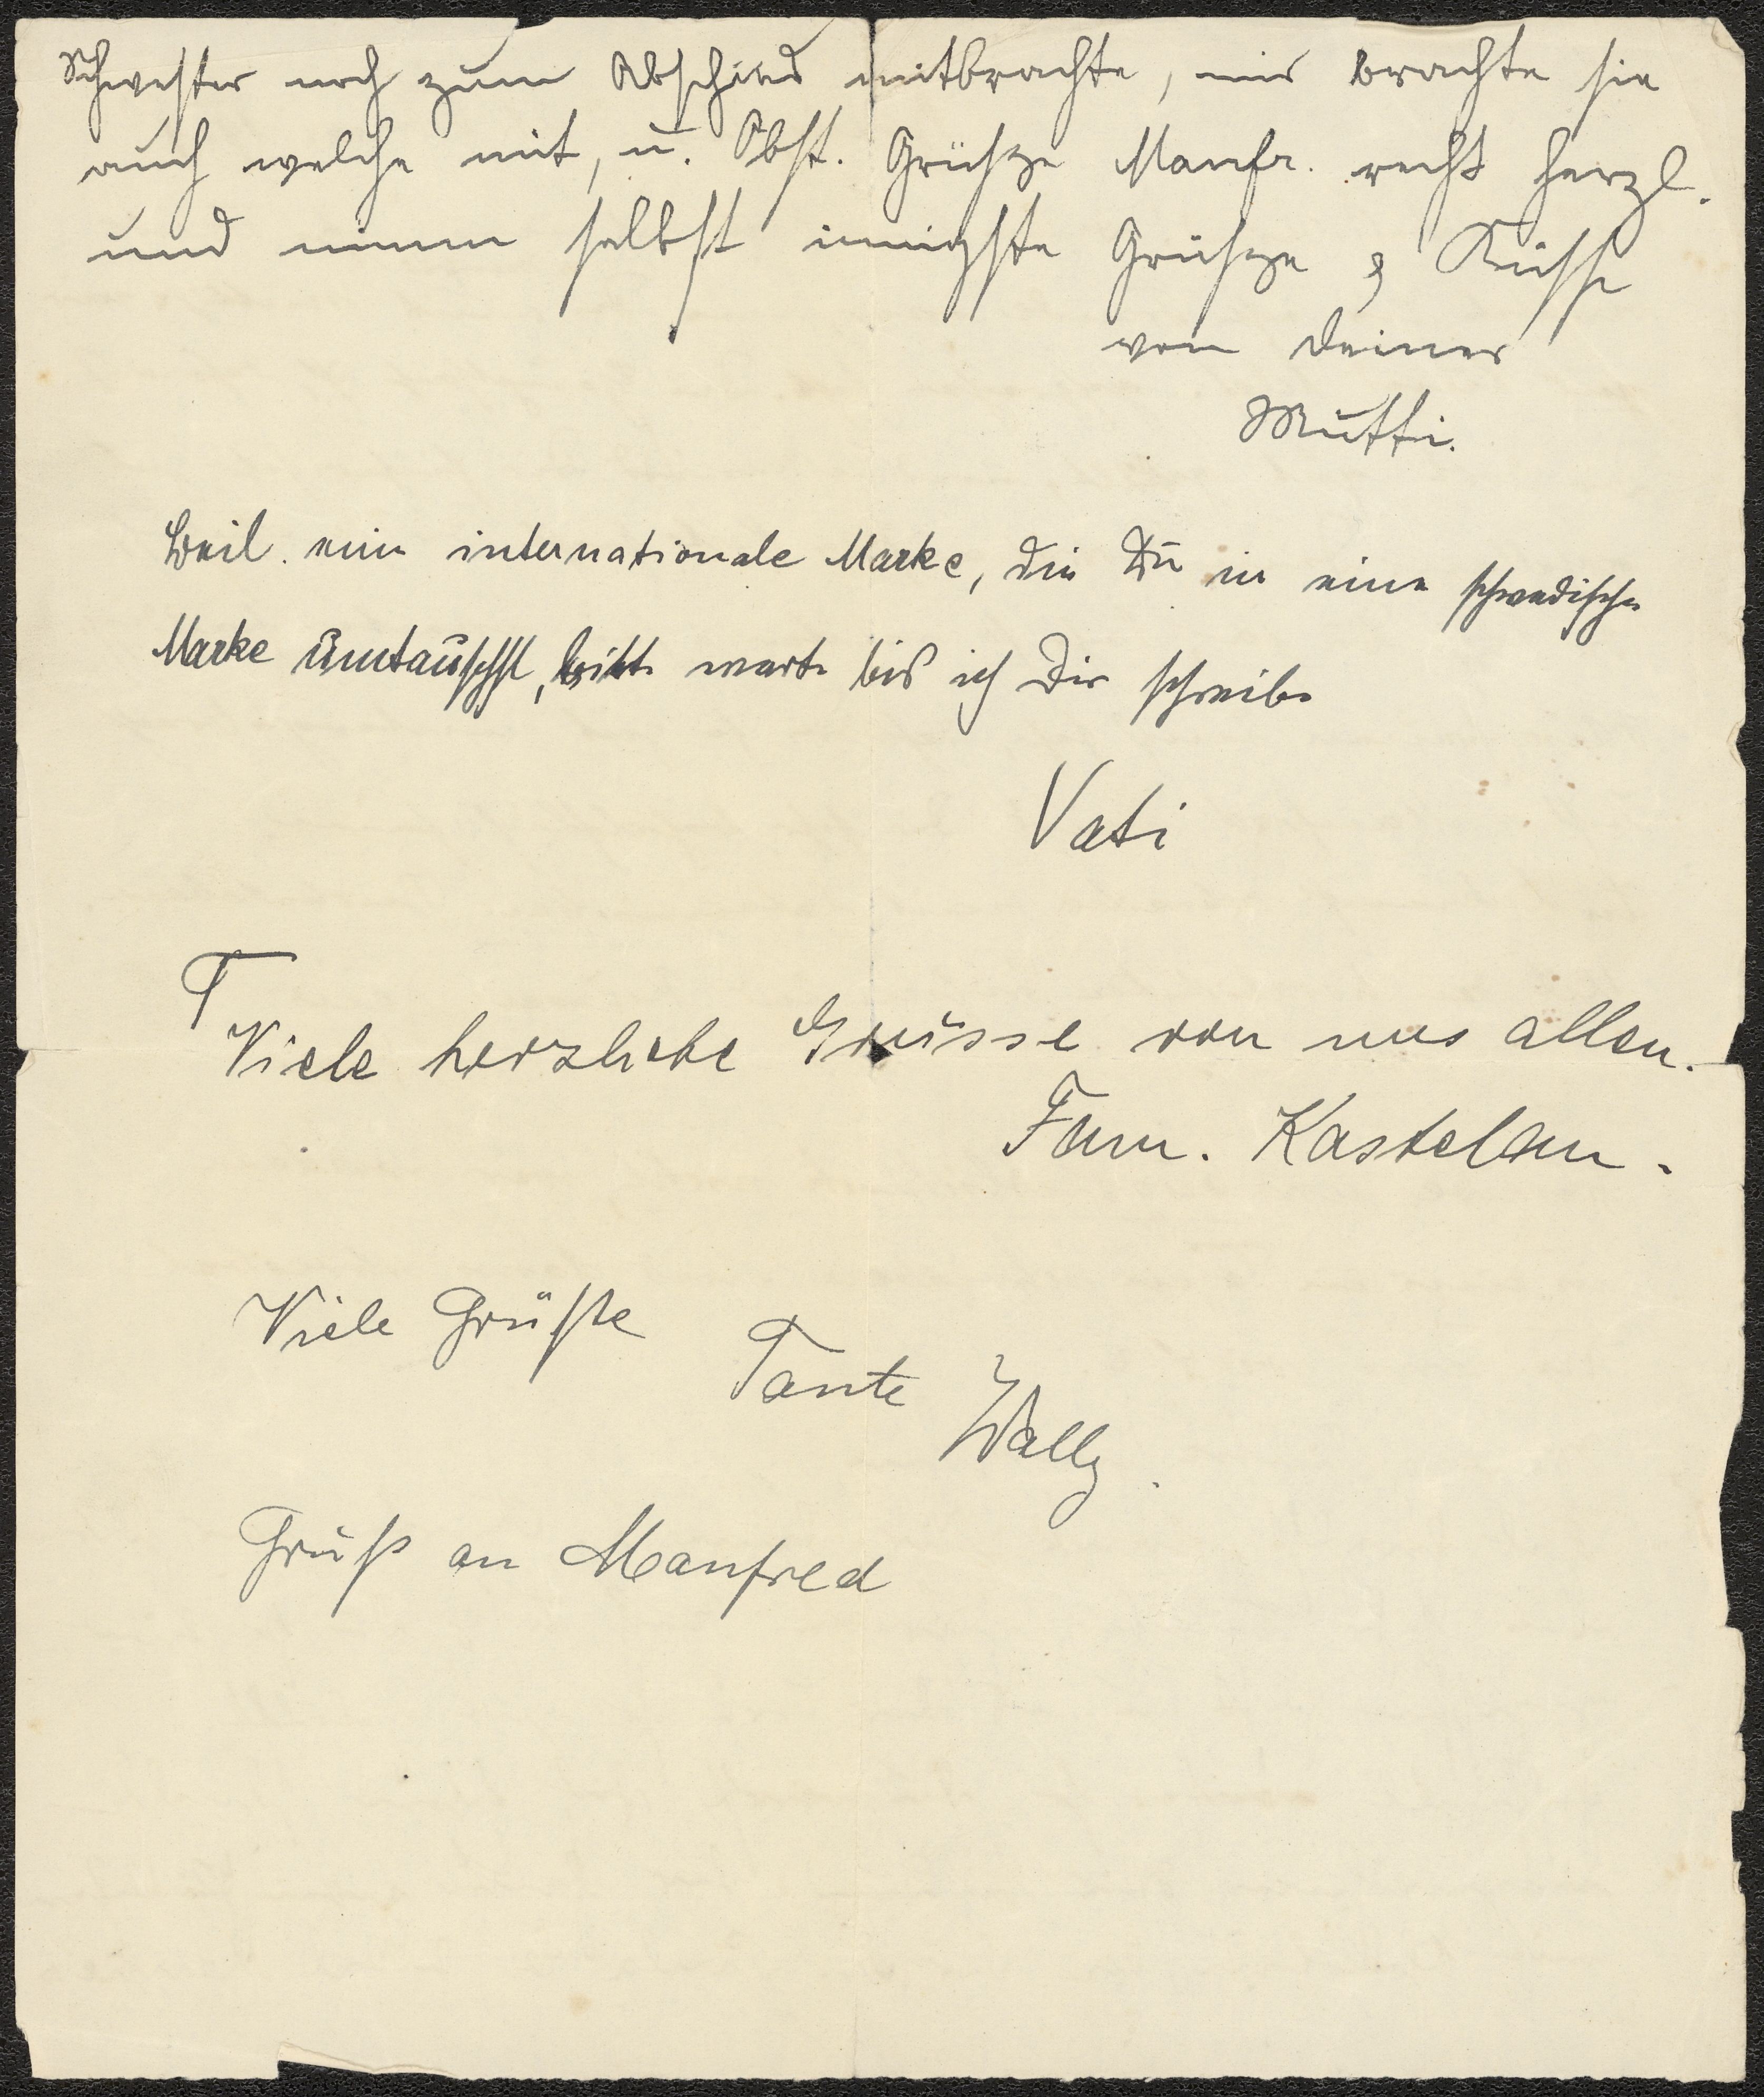 Schwester noch zum Abschied mitbrachte, mir brachte sie
auch welche mit, u. Obst. Grüsze Manfr. recht herzl.
und nimm selbst innigste Grüsze & Küsse
von Deiner
Mutti.
Beil. eine internationale Marke, die Du in eine schwedische
Marke umtauschst, bitte warte bis ich Dir schreibe
Vati
Viele herzliche Grüsse von uns allen.
Fam. Kastellan.
Viele Grüße
Tante
Wally.
Gruß an Manfred